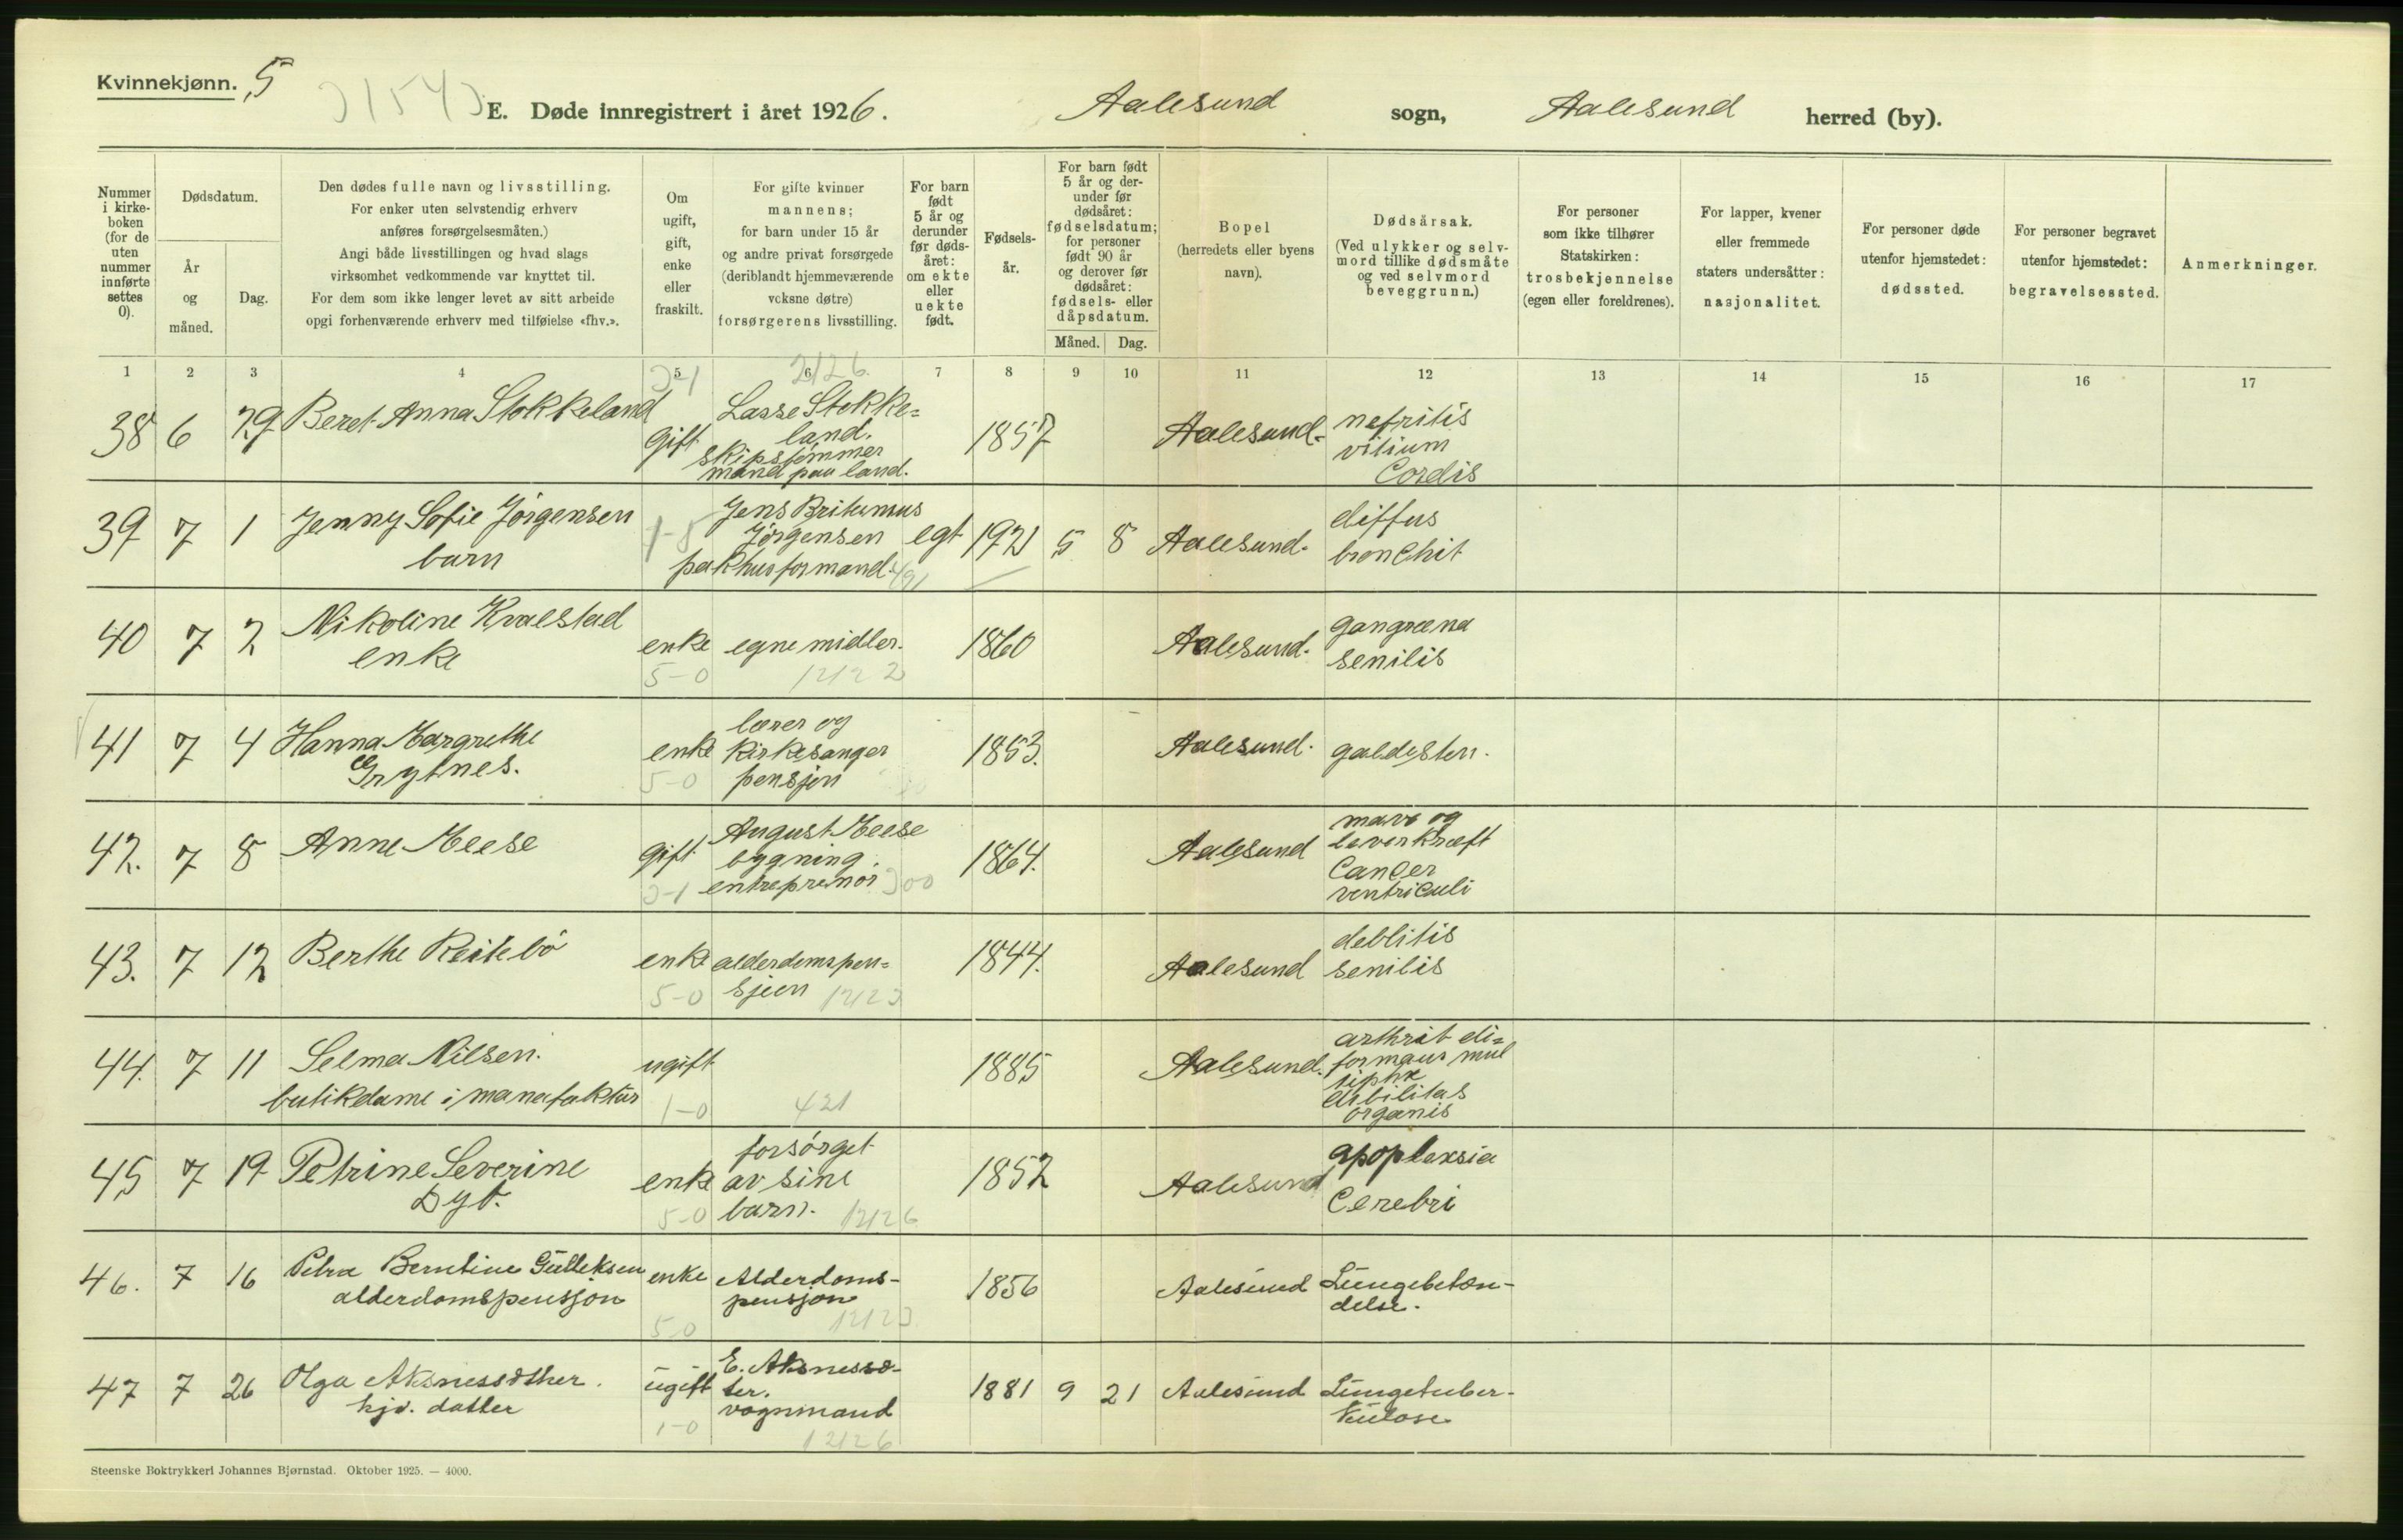 Kvinnekjønn. 5
E. Døde innregistrert i året 1926. Aalesund sogn, Aalesund herred (by).
Nummer i kirke-boken (for de uten nummer innførte settes 0).
Dødsdatum.
År og måned.
Dag.
Den dødes fulle navn og livsstilling.
For enker uten selvstendig erhverv
anføres forsørgelsesmåten.)
Angi både livsstillingen og hvad slags
virksomhet vedkommende var knyttet til.
For dem som ikke lenger levet av sitt arbeide
opgi forhenværende erhverv med tilføielse «fhv.».
Om ugift, gift, enke eller fraskilt.
For gifte kvinner
mannens;
for barn under 15 år
og andre privat forsørgede
(deriblandt hjemmeværende
voksne døtre)
forsørgerens livsstilling.
For barn født 5 år og derunder før døds-året: om ekte eller uekte født.
Fødsels-år.
For barn født 5 år og der-under før dødsåret: fødselsdatum; for personer født 90 år og derover før dødsåret: fødsels- eller dåpsdatum.
Måned. Dag.
Bopel
(herredets eller byens
navn).
Dødsårsak.
(Ved ulykker og selv-
mord tillike dødsmåte
og ved selvmord
beveggrunn.)
For personer
som ikke tilhører
Statskirken:
trosbekjennelse
(egen eller foreldrenes).
For lapper, kvener
eller fremmede
staters undersåtter:
nasjonalitet.
For personer døde
utenfor hjemstedet:
dødssted.
For personer begravet
utenfor hjemstedet:
begravelsessted.
Anmerkninger.
1 2 3 4 5 6 7 8 9 10 11 12 13 14 15 16 17
2126
38 6 29 Beret Anna Stokkeland Gift Lasse Stokke=
land.
skipstömmer
mand paa land. 1857 Aalesund. nefritis
vitium
Cordis
39 7 1 Jenny Sofie Jörgensen
barn 1-8 Jens
Jörgensen
pakhusformand. 491 egt 1921 5 8 Aalesund. diffus
bronchit
40 7 2 Nikoline Kvalstad
enke enke 5-0 egne midler. 12122 1860 Aalesund. gangræna
senilis
41 7 4 Hanna Margrethe
Grytnes. enke 5-0 lærer og
Kirkesanger
pensjon 1853. Aalesund. galdesten.
42. 7 8 Anne Meese Gift August Meese
bygning.
entreprenör 1864. Aalesund mave og
leverkræft
Cancer
ventriculi
43. 7 12 Berthe Reitebö enke 5-0 alderdomspen=
sjon 1844. Aalesund deblitis
senilis
44. 7 11 Selma Nilsen.
butikdame i manufaktur ugift 1-0 421 1885 Aalesund. arthrit di=
formans mul
debilitas
organis
45 7 19 Petrine Severine
Dyb. enke 5-0 forsörget
av sine
barn. 12126 1852 Aalesund apoplexsia
Cerebri
46. 7 16 Petra Berntine Gulleksen
alderdomspensjon enke 5-0 Alderdoms-
pensjon 1856 Aalesund Lungebetæn-
delse.
47 7 26 Olga Aksnessæther.
hjv. datter ugift 1-0 E. Aksnessæ-
ter.
vognmand 12126 1881 9 21 Aalesund Lungetuber-
kulose
Steenske Boktrykkeri Johannes Bjørnstad. Oktober 1925. — 4000.